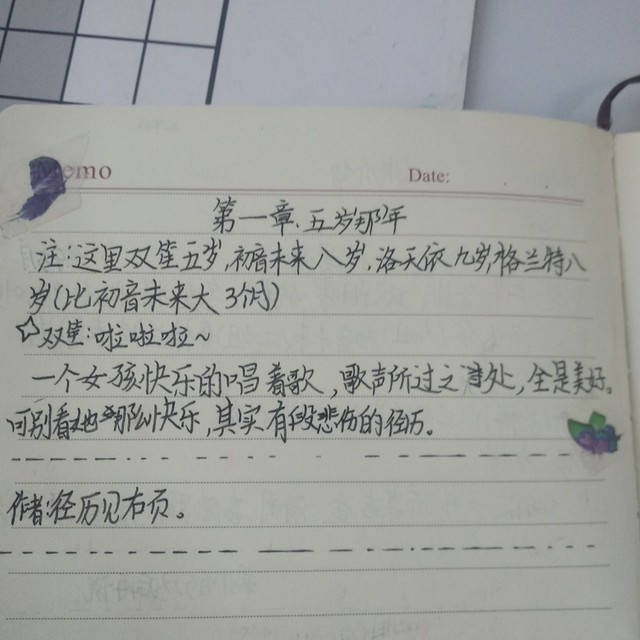 Memo Date:
第一章.五岁那年
注:这里双笙五岁,初音未来八岁,洛天依九岁,格兰特八
岁(比初音未来大3个月)
☆双笙:啦啦啦~
一个女孩快乐的唱着歌,歌声所过之处,全是美好。
可别看她那么快乐,其实有段悲伤的径历。
作者:径历见右页。